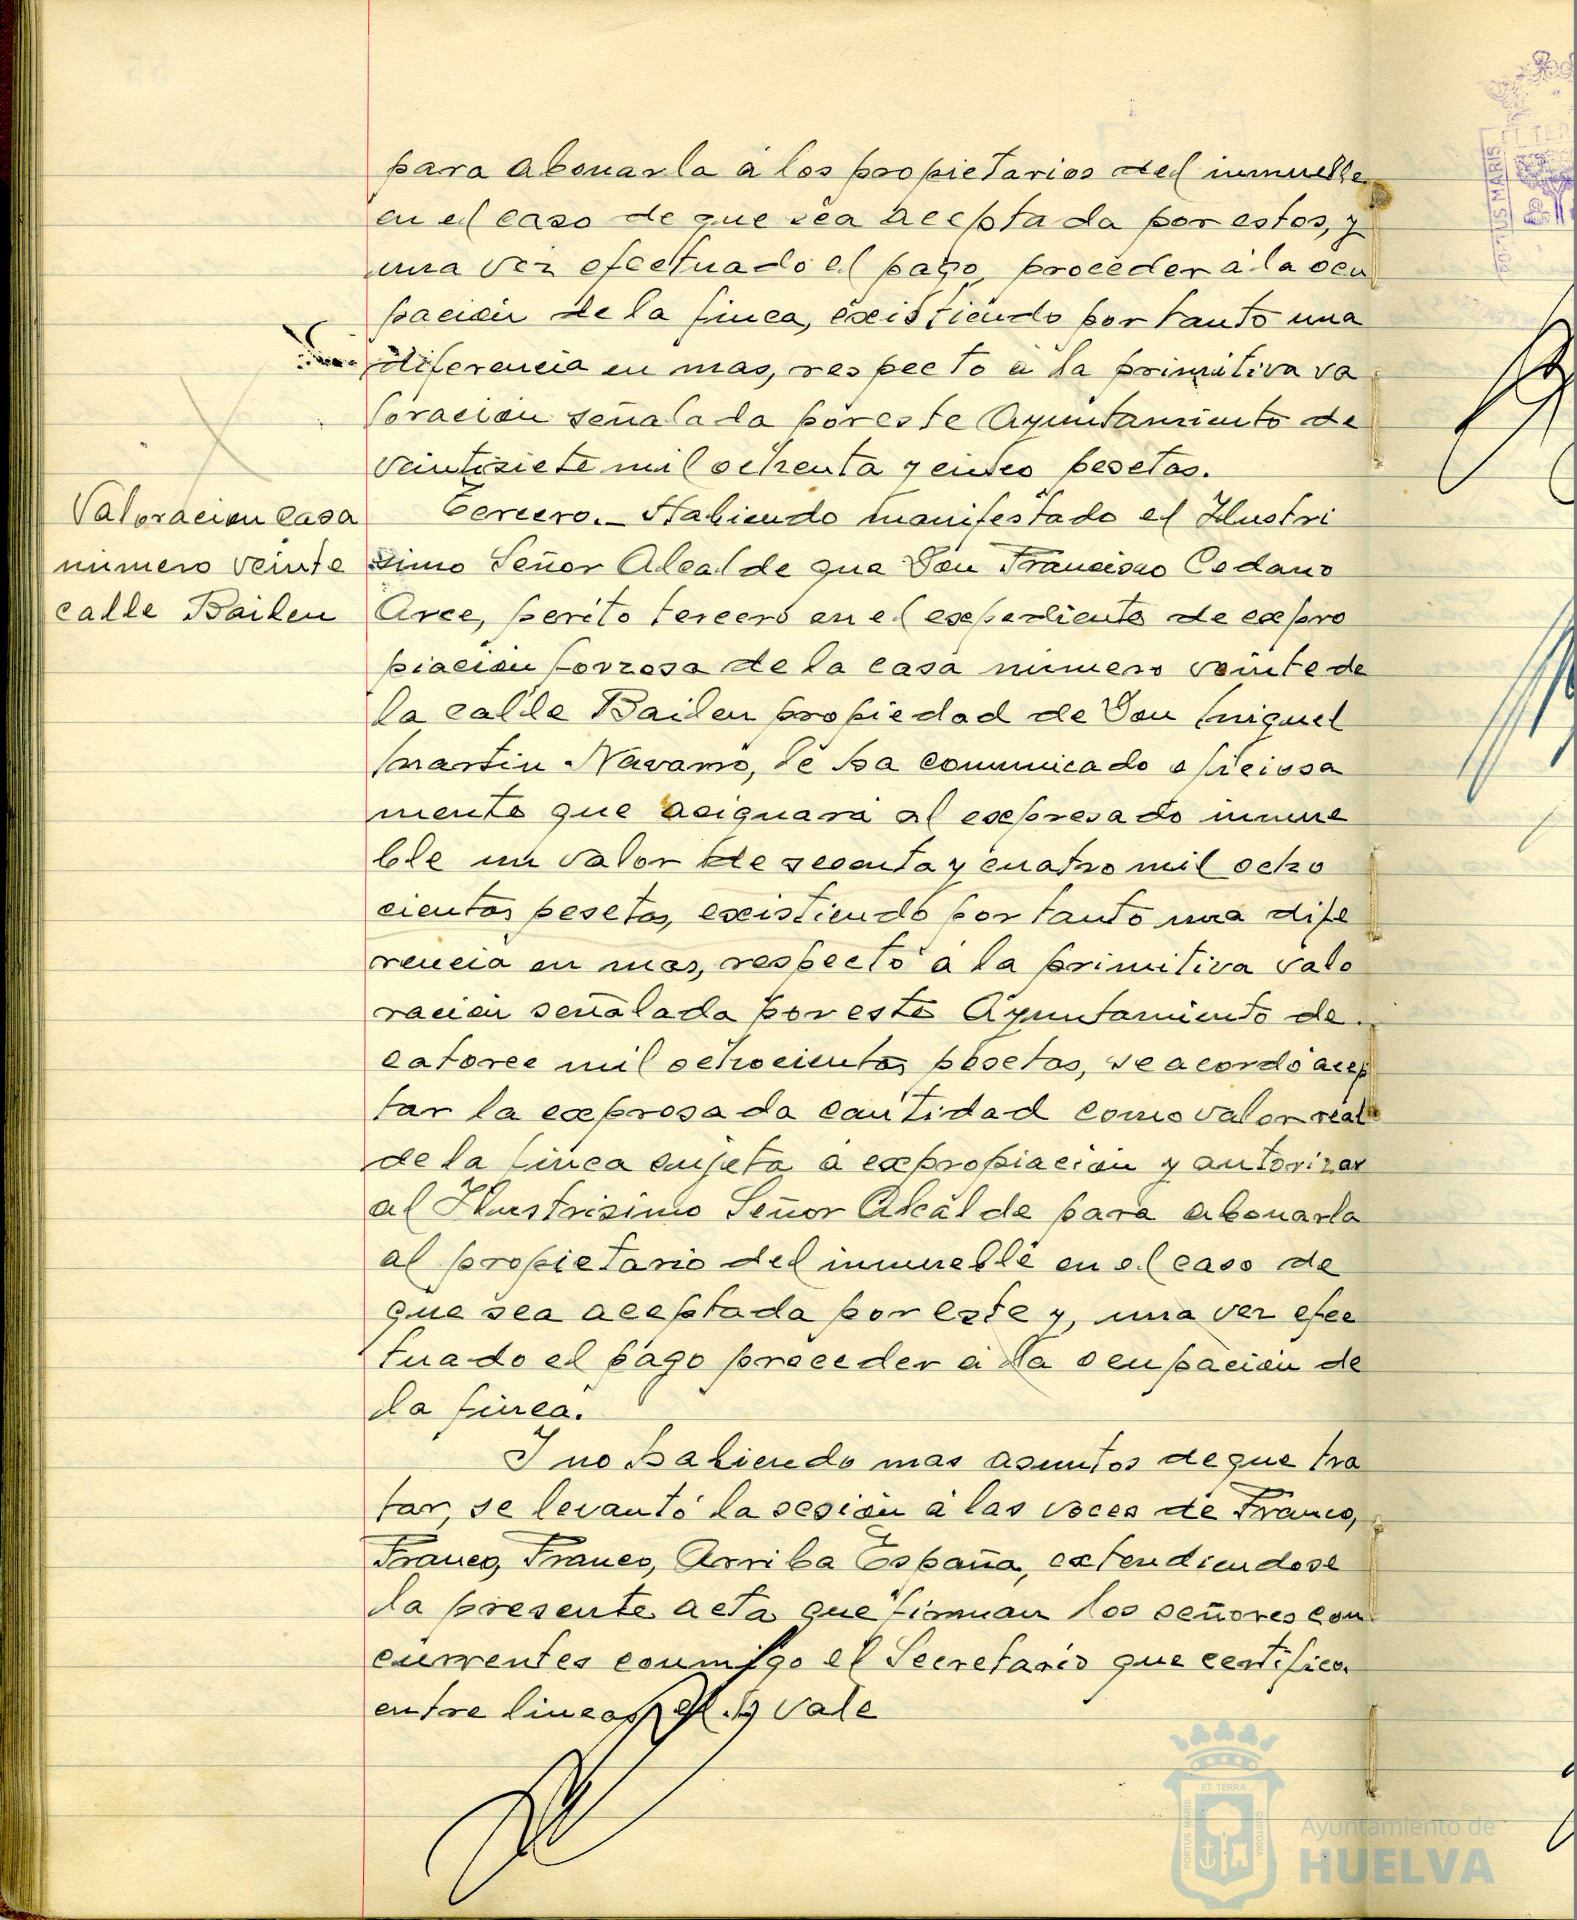 para abonarla á los propietarios del inmueble
en el caso de que sea aceptada por estos, y
una vez efectuado el pago, proceder á la ocu
pación de la finca, existiendo por tanto una
diferencia en mas, respecto á la primitiva va
loración señalada por este Ayuntamiento de
veintisiete mil ochenta y cinco pesetas.
Valoracion casa
numero veinte
calle Bailen
Tercero._ Habiendo manifestado el Ilustri
simo Señor Alcalde que Don Francisco Cedano
Arce, perito tercero en el expediente de expro
piación forzosa de la casa numero veinte de
la calle Bailen propiedad de Don Miguel
Martin Navarro, le ha comunicado oficiosa
mente que asignará al expresado inmue
ble un valor de sesenta y cuatro mil ocho
cientas pesetas, existiendo por tanto una dife
rencia en mas, respecto á la primitiva valo
ración señalada por este Ayuntamiento de
catorce mil ochocientas pesetas, se acordó acep
tar la expresada cantidad como valor real
de la finca sujeta a expropiación y autorizar
al Ilustrisimo Señor Alcalde para abonarla
al propietario del inmueble en el caso de
que sea aceptada por este y, una vez efec
tuado el pago proceder á la ocupación de
la finca.
Y no habiendo mas asuntos de que tra
tar, se levantó la sesión á las voces de Franco,
Franco, Franco, Arriba España, extendiendose
la presente acta que firman los señores con
currentes conmigo el Secretario que certifico.
entre lineas vale
PORTUS MARIS
ET TERRA
Ayuntamiento de
HUELVA